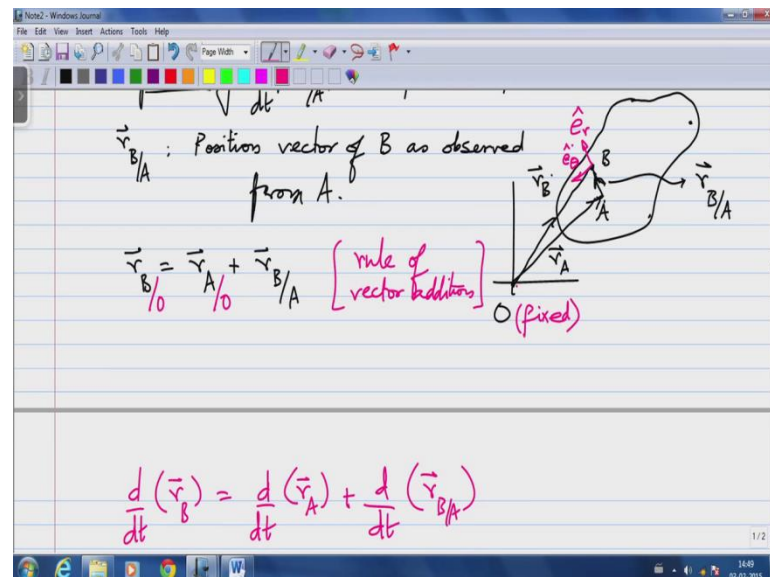 Note2 - Windows Journal
File Edit View Insert Actions Tools Help
Page Width
dt /A
r⃗ B/A : Position vector of B as observed
from A.
r⃗ B/O = r⃗ A/O + r⃗ B/A [rule of
vector addition]
ê r
ê θ
B
r⃗ B
A
r⃗ B/A
r⃗ A
O (fixed)
d/dt (r⃗ B) = d/dt (r⃗ A) + d/dt (r⃗ B/A)
1/2
14:49